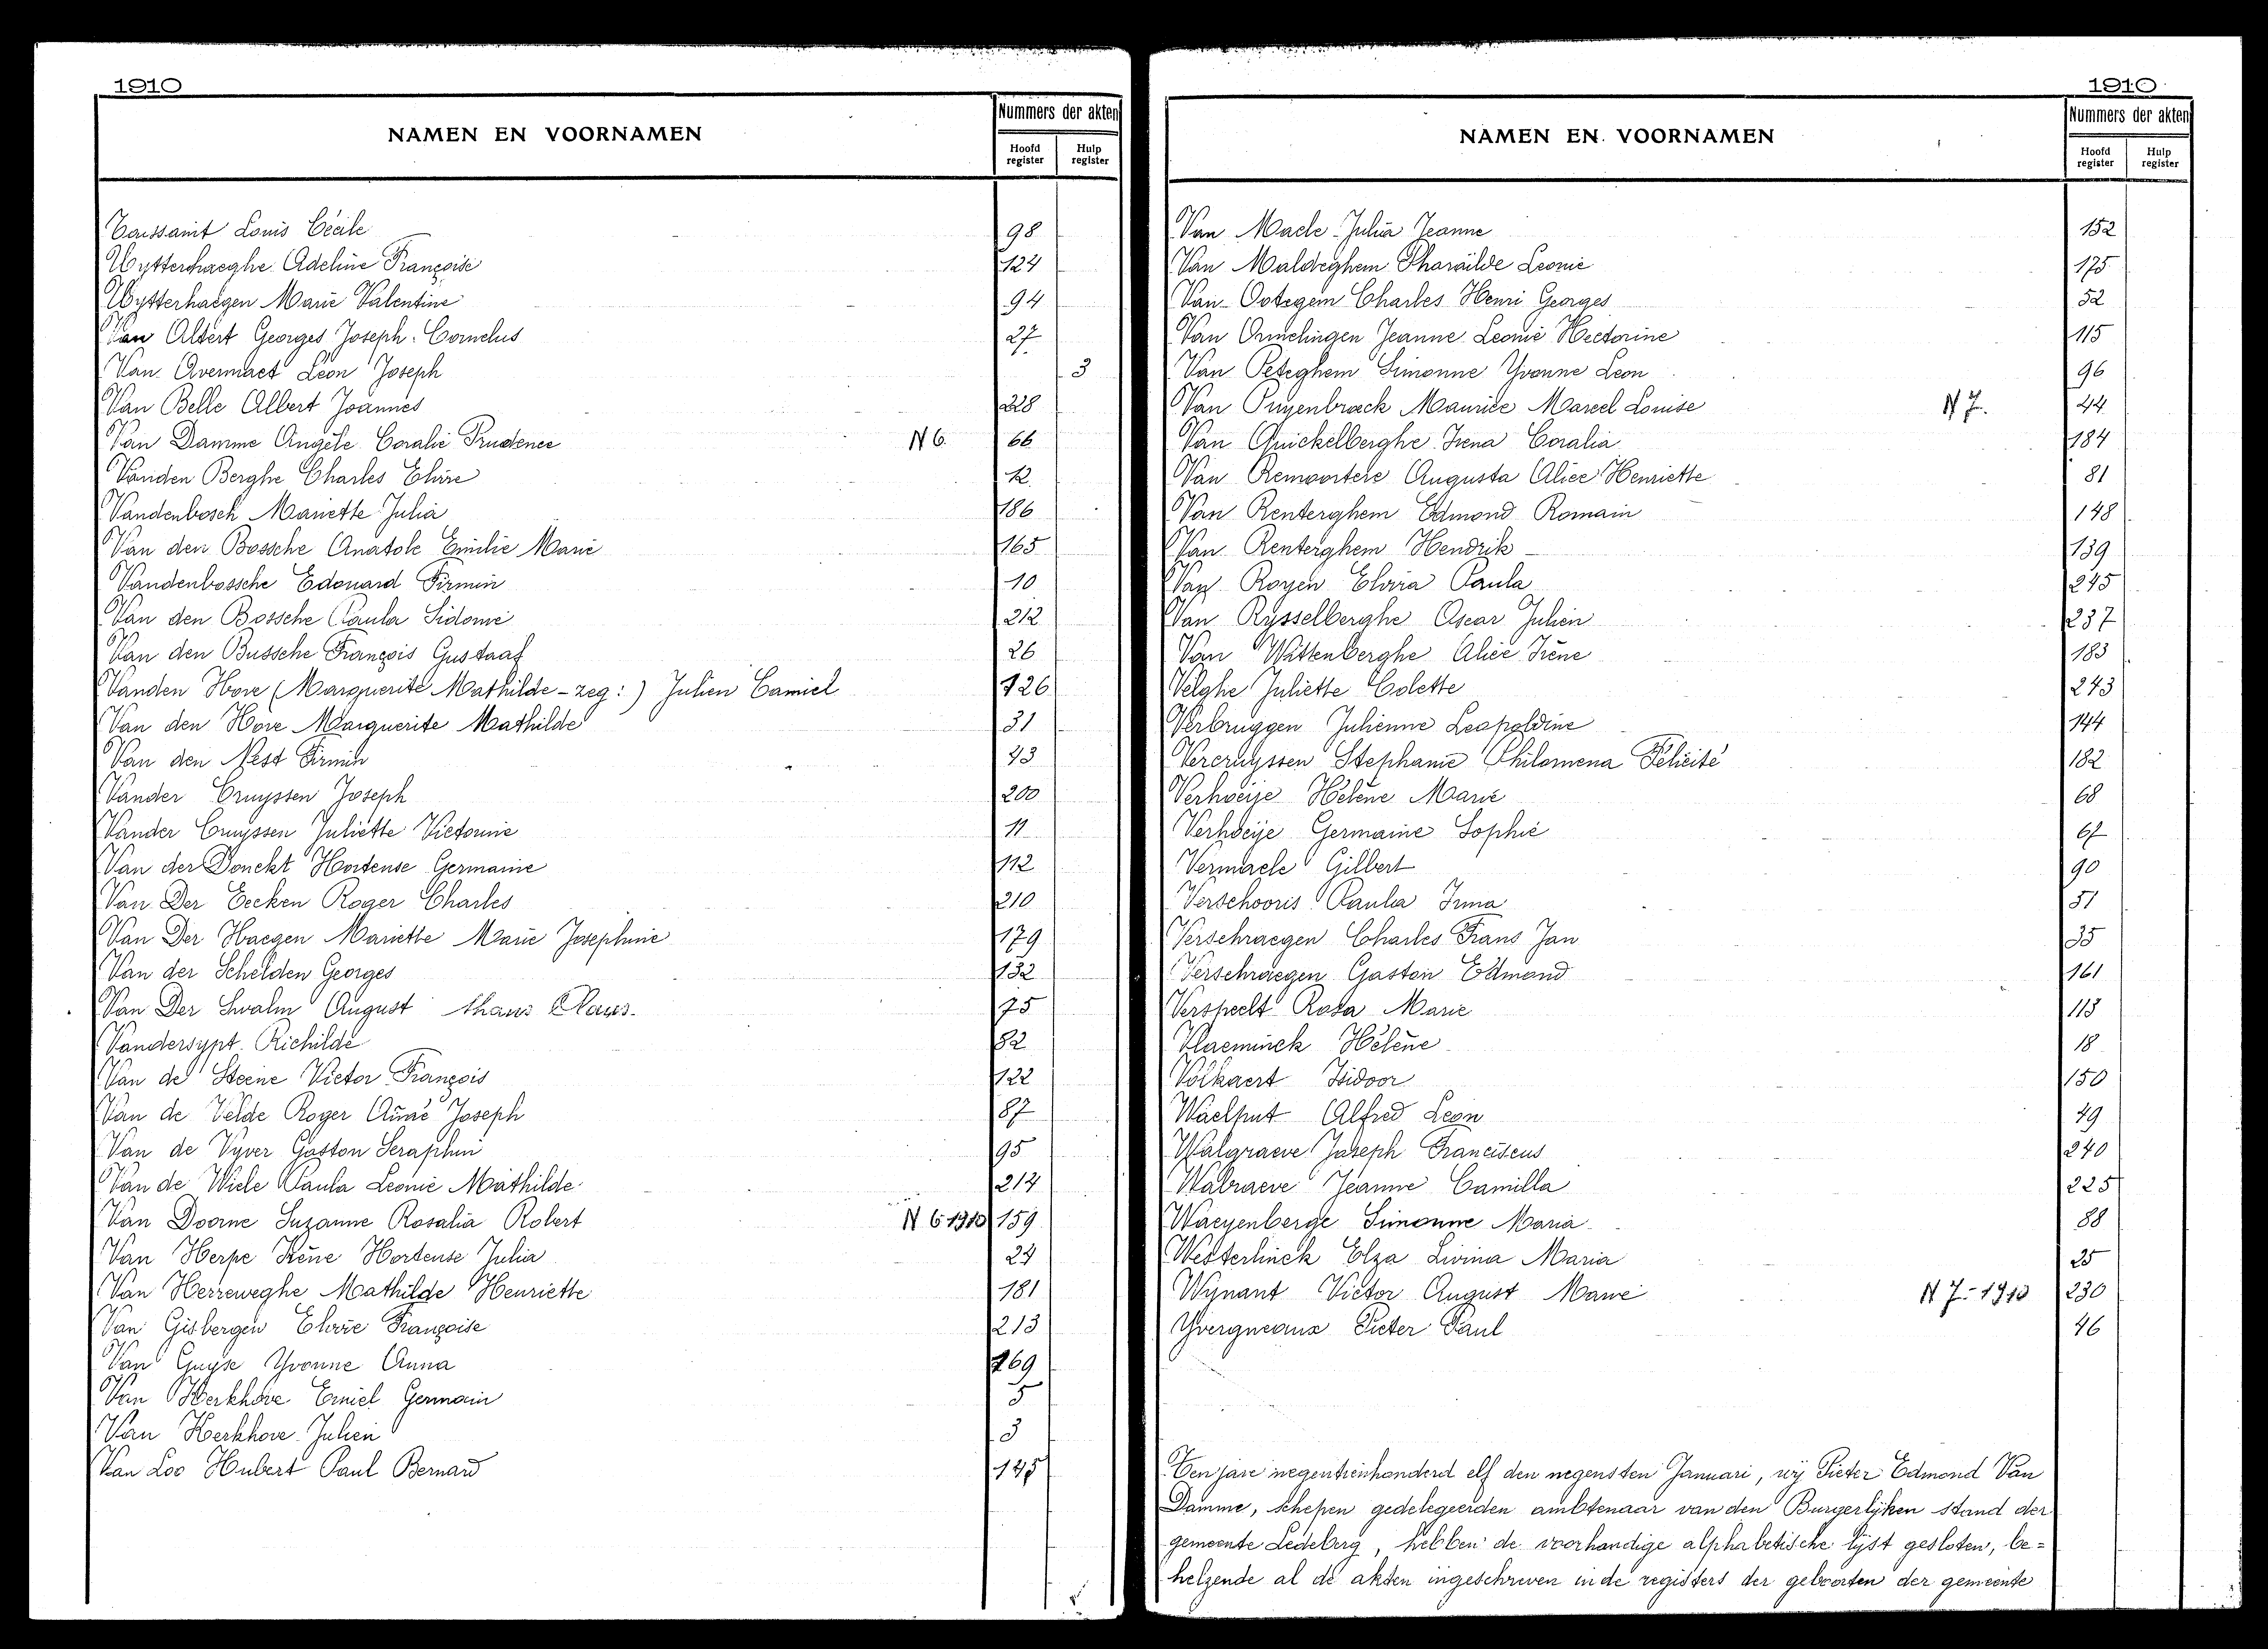 1910
NAMEN EN VOORNAMEN
Nummers der akten
Hoofd register
Hulp register
Toussaint Louis Cécile 98
Uytterhaeghe Adeline Françoise 124
Uytterhaegen Marie Valentine 94
Van Altert Georges Joseph Cornelus 27
Van Avermaet Léon Joseph 3
Van Belle Albert Joannes 228
Van Damme Angèle Coralie Prudence N 6. 66
Vanden Berghe Charles Elvire 12
Vandenbosch Mariette Julia 186
Van den Bossche Anatole Emilie Marie 165
Vandenbossche Edouard Firmin 10
Van den Bossche Paula Sidonie 212
Van den Bussche François Gustaaf 26
Vanden Hove (Marguerite Mathilde - zeg:) Julien Camiel 126
Van den Hove Marguerite Mathilde 31
Van den Nest Firmin 43
Vander Cruyssen Joseph 200
Vander Cruyssen Juliette Victorine 11
Van der Donckt Hortense Germaine 112
Van Der Eecken Roger Charles 210
Van Der Haegen Mariette Marie Josephine 179
Van der Schelden Georges 132
Van Der Swalm August thans Claus. 75
Vandersypt Richilde 82
Van de Steene Victor François 122
Van de Velde Roger Aimé Joseph 87
Van de Vyver Gaston Seraphin 95
Van de Wiele Paula Leonie Mathilde 214
Van Doorne Suzanne Rosalia Robert N 6 1910 159
Van Herpe Irène Hortense Julia 24
Van Herreweghe Mathilde Henriette 181
Van Gisbergen Elvire Françoise 213
Van Guyse Yvonne Anna 169
Van Kerkhove Emiel Germain 5
Van Kerkhove Julien 3
Van Loo Hubert Paul Bernard 145
1910
NAMEN EN VOORNAMEN
Nummers der akten
Hoofd register
Hulp register
Van Maele Julia Jeanne 152
Van Maldeghem Pharaïlde Leonie 175
Van Ootegem Charles Henri Georges 52
Van Ormelingen Jeanne Leonie Hectorine 115
Van Peteghem Simonne Yvonne Leon 96
Van Puyenbroeck Maurice Marcel Louise N 7. 44
Van Quickelberghe Irena Coralia 184
Van Remoortere Augusta Alice Henriette 81
Van Renterghem Edmond Romain 148
Van Renterghem Hendrik 139
Van Royen Elvira Paula 245
Van Rysselberghe Oscar Julien 237
Van Wittenberghe Alice Irène 183
Velghe Juliette Colette 243
Verbruggen Julienne Leopoldine 144
Vercruyssen Stephanie Philomena Félicité 182
Verhoeije Hélène Marie 68
Verhoeije Germaine Sophie 67
Vermaele Gilbert 90
Verschooris Paula Irma 51
Verschraegen Charles Frans Jan 35
Verschraegen Gaston Edmond 161
Verspeelt Rosa Marie 113
Vlaeminck Hélène 18
Volkaert Isidoor 150
Waelput Alfred Leon 49
Walgraeve Joseph Franciscus 240
Walraeve Jeanne Camilla 225
Waeyenberge Simonne Maria 88
Westerlinck Elza Livina Maria 25
Wynant Victor August Marie N 7 - 1910 230
Yvergneaux Pieter Paul 46
Ten jare negentienhonderd elf den negensten Januari, wij Pieter Edmond Van
Damme, schepen gedelegeerden ambtenaar van den Burgerlijken stand der
gemeente Ledeberg, hebben de voorhandige alphabetische lijst gesloten, be=
helzende al de akten ingeschreven in de registers der geboorten der gemeente